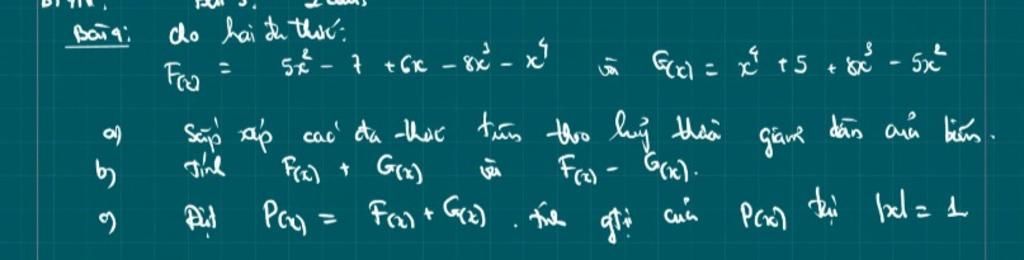 Bài 9: cho hai đa thức:
F(x) = 5x² - 7 + 6x - 8x³ - x⁴ và G(x) = x⁴ + 5 + 8x³ - 5x²
a) Sắp xếp các đa thức trên theo luỹ thừa giảm dần của biến.
b) Tính F(x) + G(x) và F(x) - G(x).
c) Đặt P(x) = F(x) + G(x). tính gtrị của P(x) tại |x| = 1